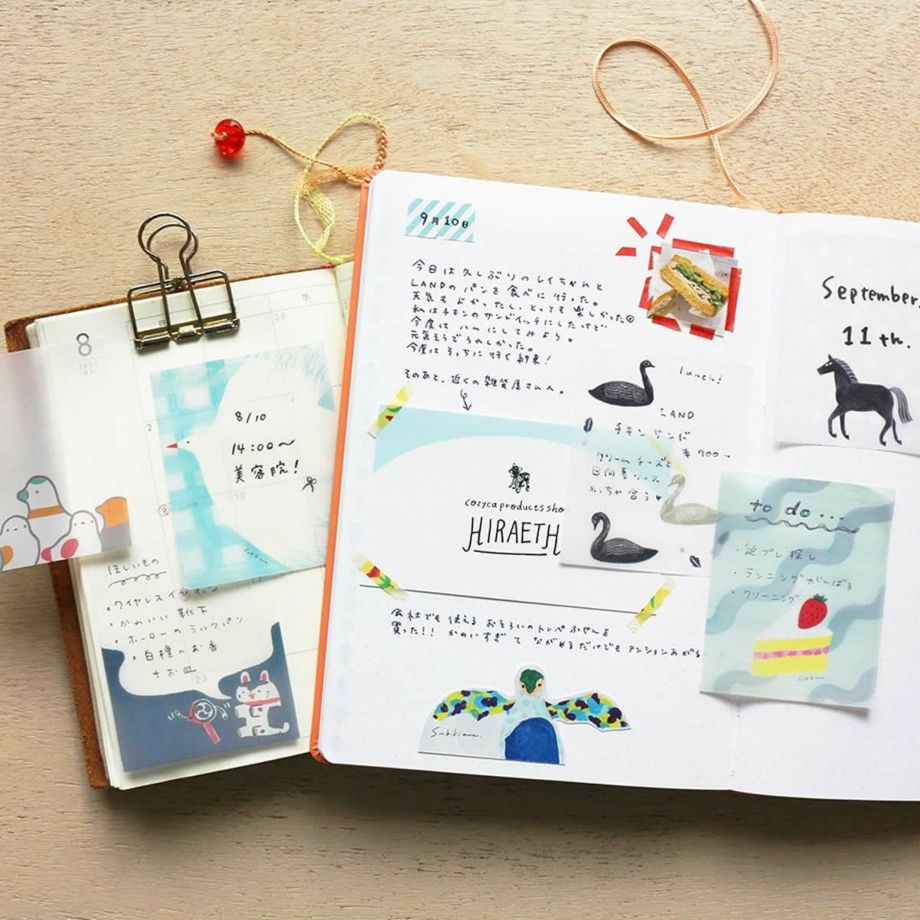 8
日
水
8/10
14:00〜
美容院!
ほしいもの
・ワイヤレスイヤホン
・かわいい靴下
・ホーローのミルクパン
・白檀のお香
+お皿
9月10日
今日は久しぶりのレイちゃんと
LANDのパンを食べに行った。
天気もよかったし、とっても楽しかった
私はチキンのサンドイッチにしたけど
今度はハムにしてみよう。
元気そうでうれしかった。
今度はそっちに行く約束!
そのあと、近くの雑貨屋さんへ。
lunch!
LAND
チキンサンド
¥900
クリームチーズと
合う
cozyca products sho
HIRAETH
会社でも使えるおそろいのトレペふせんを
買った!!かわいすぎてながめるだけでもテンションあがる
Subikiawa.
September,
11th.
to do...
・逆プレ探し
・ランニングがんばる
・クリーニング